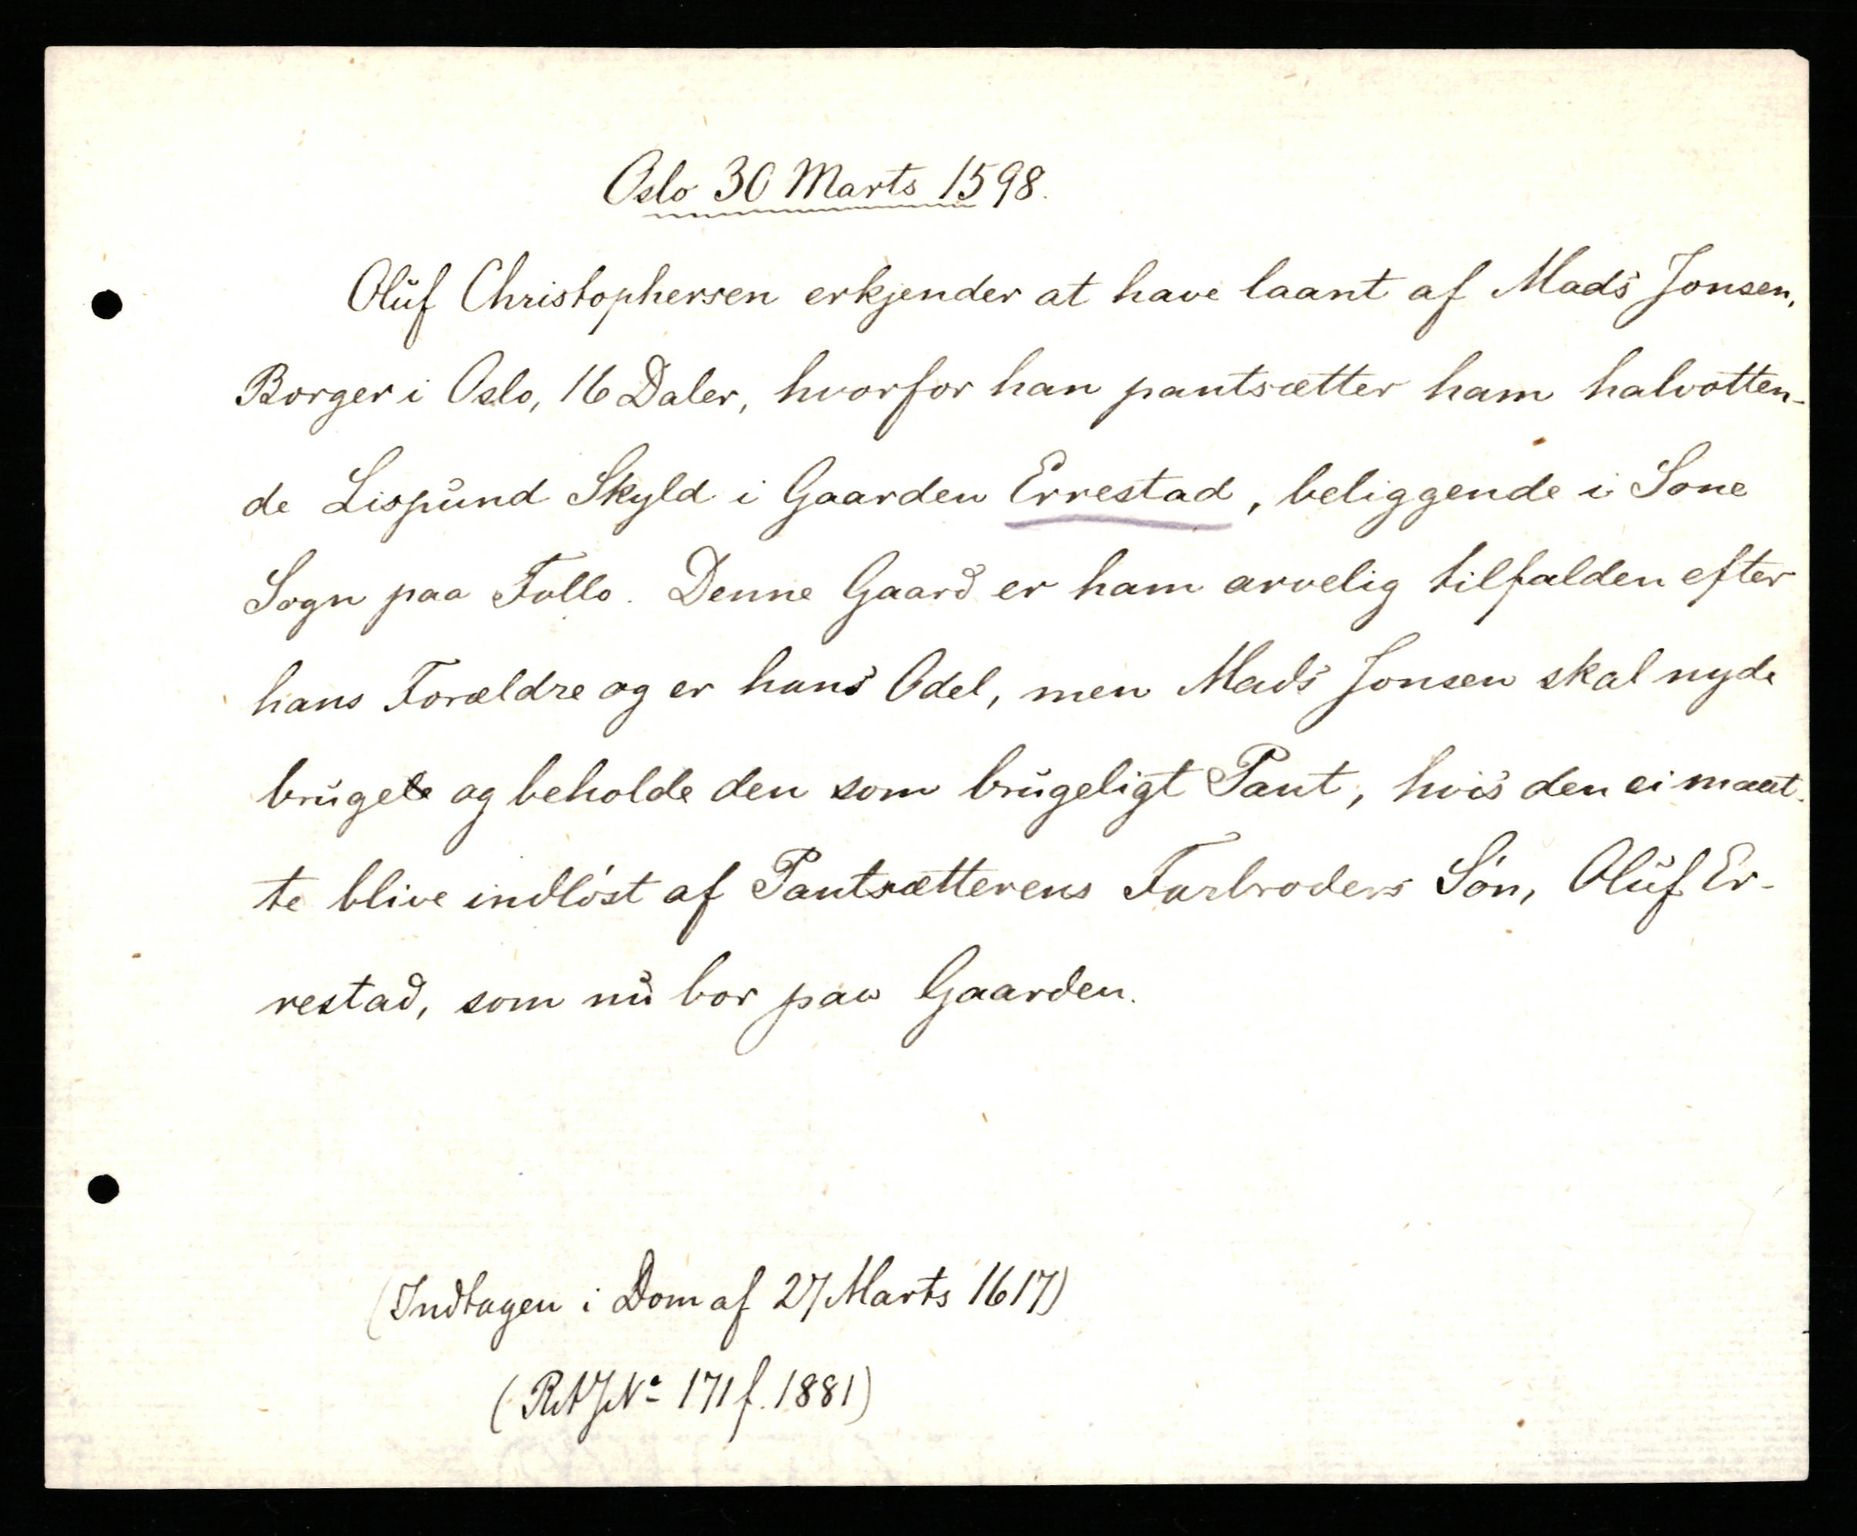 Oslo 30 Marts 1598.
Oluf Christophersen erkjender at have laant af Mads Jonsen,
Borger i Oslo, 16 Daler, hvorfor han pantsætter ham halvotten-
de Lispund Skyld i Gaarden Errestad, beliggende i Sone
Sogn paa Follo. Denne Gaard er ham arvelig tilfalden efter
hans Forældre og er hans Odel, men Mads Jonsen skal nyde
bruge og beholde den som brugeligt Pant, hvis den ei maat-
te blive indløst af Pantsætterens Farbroders Søn, Oluf Er-
restad, som nu bor paa Gaarden.
(Indtagen i Dom af 27 Marts 1617)
(RAJNo 171 f. 1881)